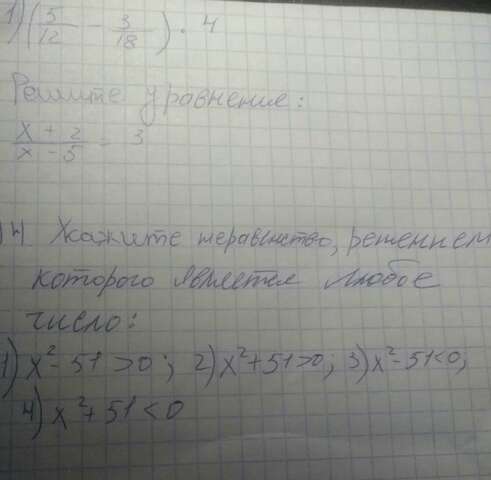 1) (5/12 - 3/18) · 4
Решите уравнение:
x + 2 / x - 5 = 3
14 Укажите неравенство, решением
которого является любое
число:
1) x² - 51 > 0; 2) x² + 51 > 0; 3) x² - 51 < 0;
4) x² + 51 < 0